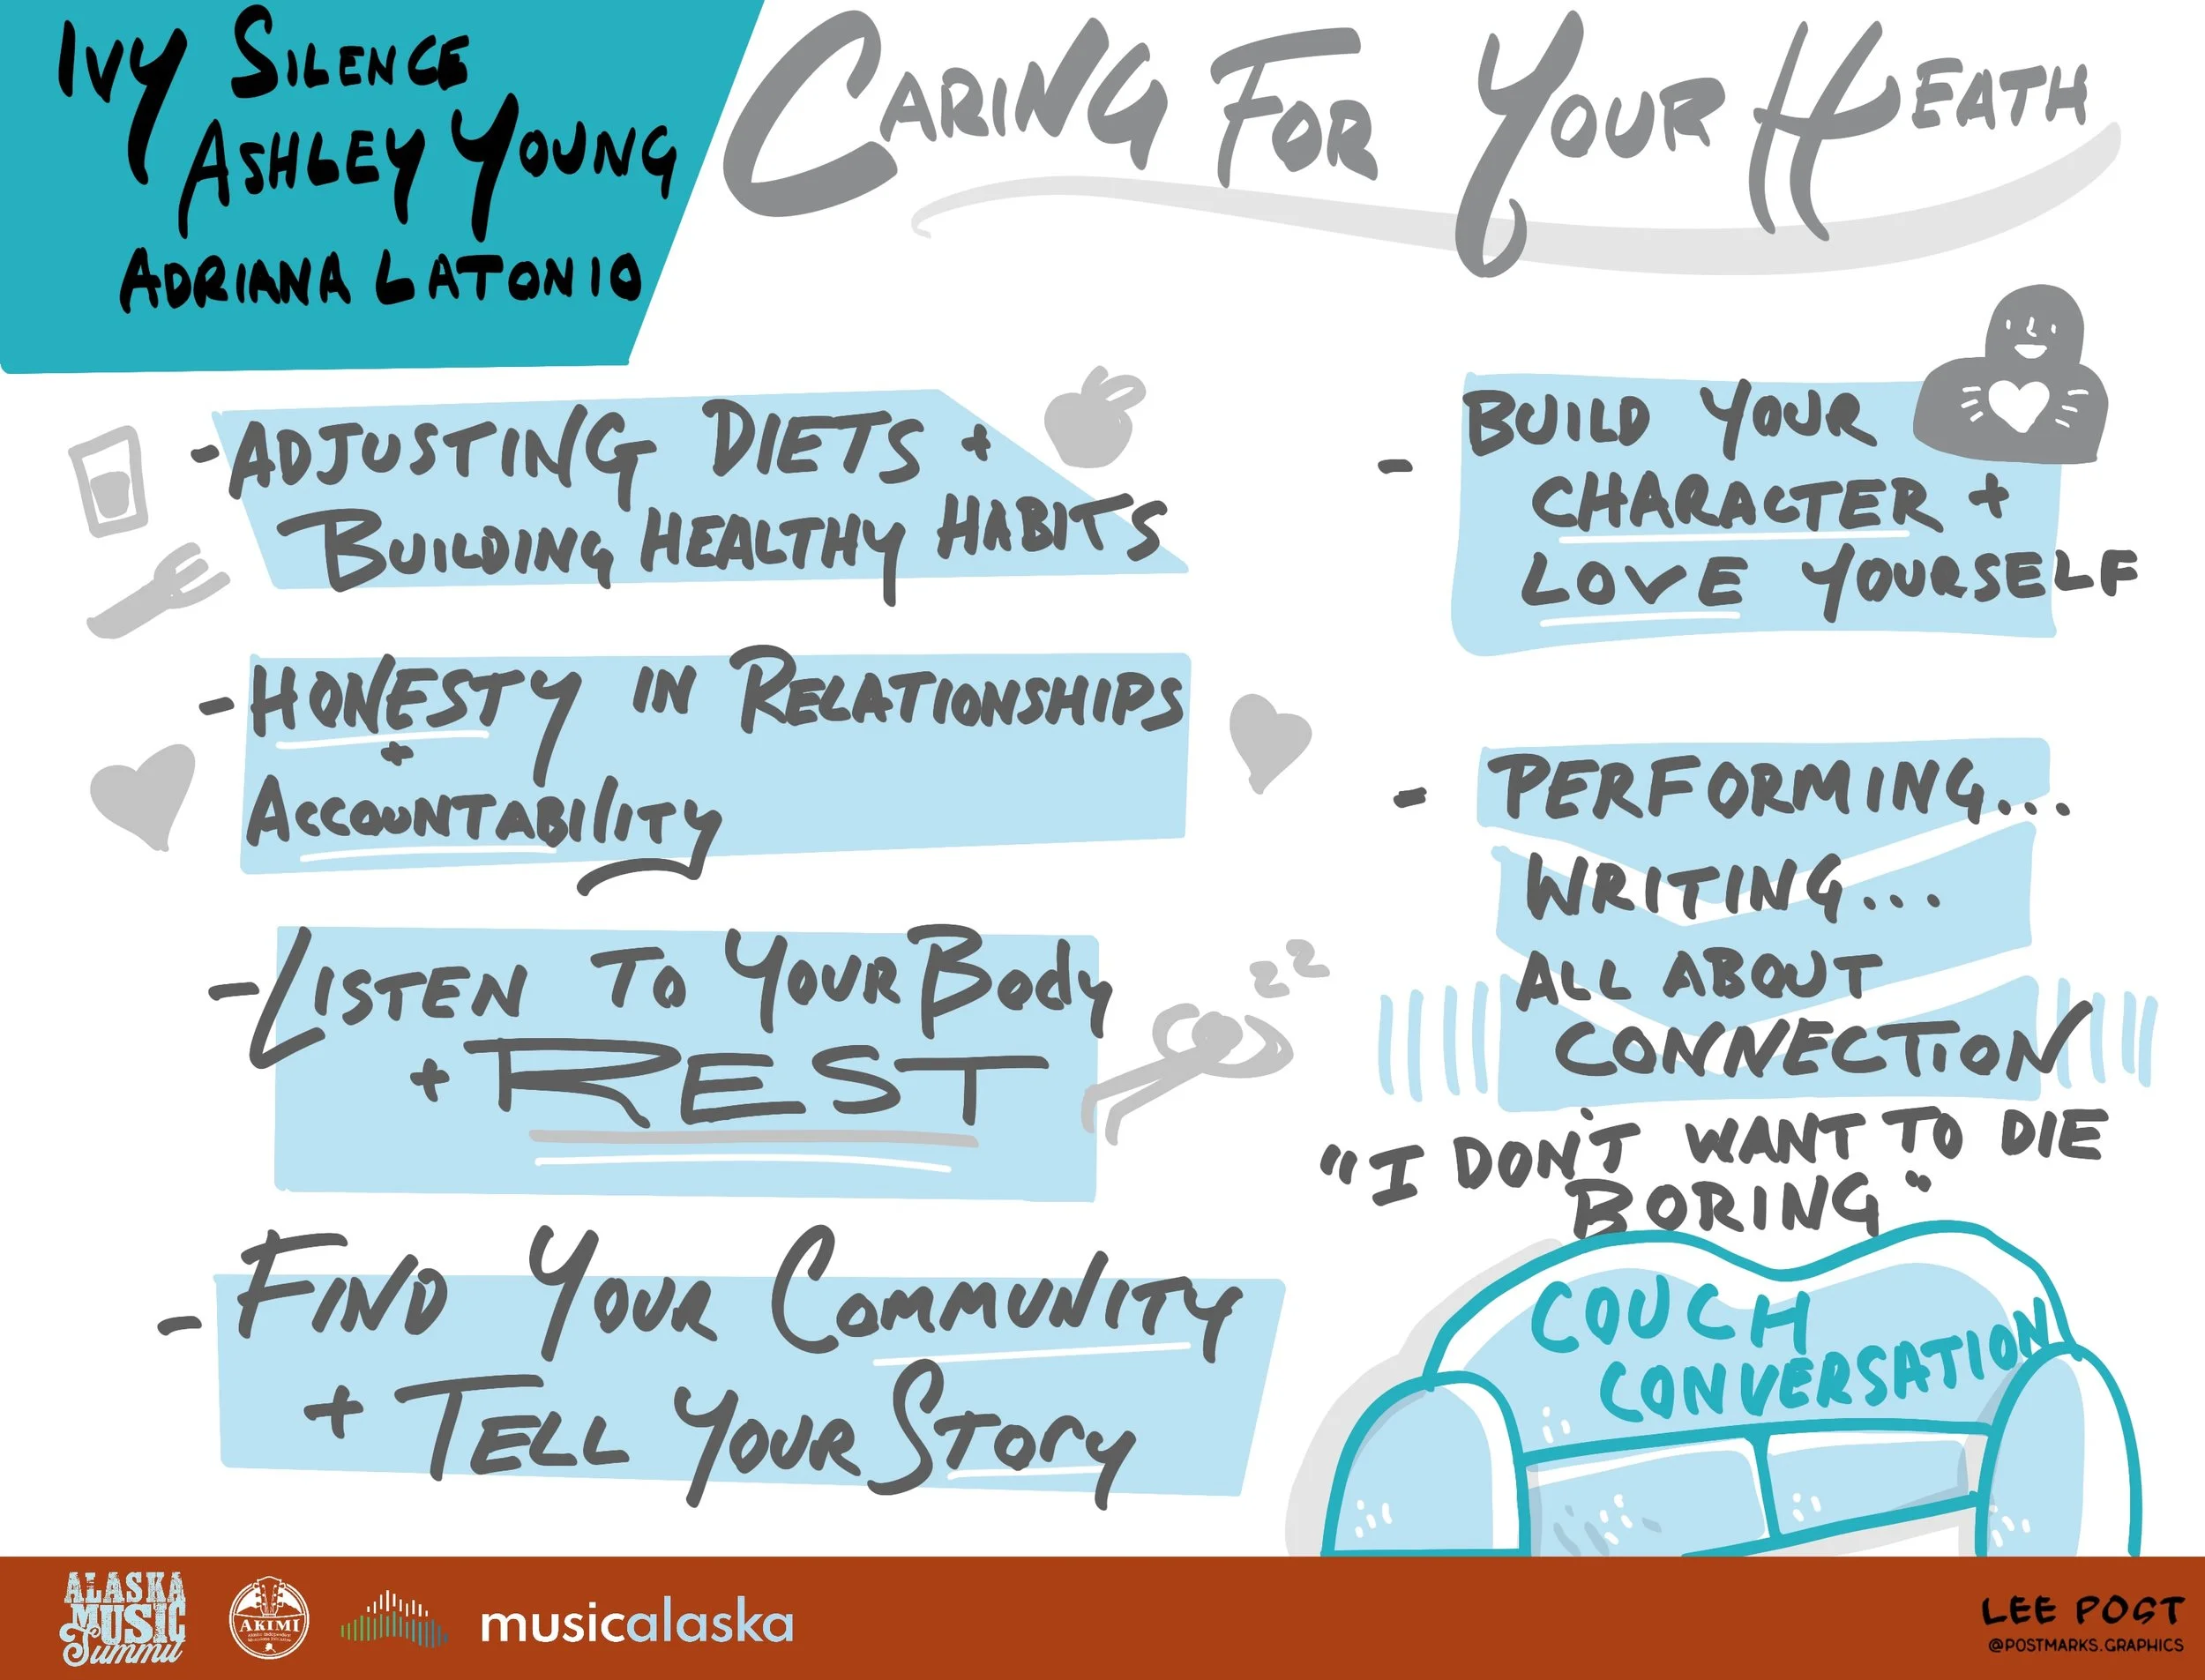 IVY SILENCE
ASHLEY YOUNG
ADRIANA LATONIO
CARING FOR YOUR HEATH
- ADJUSTING DIETS +
BUILDING HEALTHY HABITS
- HONESTY IN RELATIONSHIPS
+
ACCOUNTABILITY
- LISTEN TO YOUR BODY
+ REST
- FIND YOUR COMMUNITY
+ TELL YOUR STORY
- BUILD YOUR
CHARACTER +
LOVE YOURSELF
- PERFORMING...
WRITING...
ALL ABOUT
CONNECTION
"I DON'T WANT TO DIE
BORING"
COUCH
CONVERSATION
z z
ALASKA
MUSIC
Summit
AKIMI
musicalaska
LEE POST
@POSTMARKS.GRAPHICS